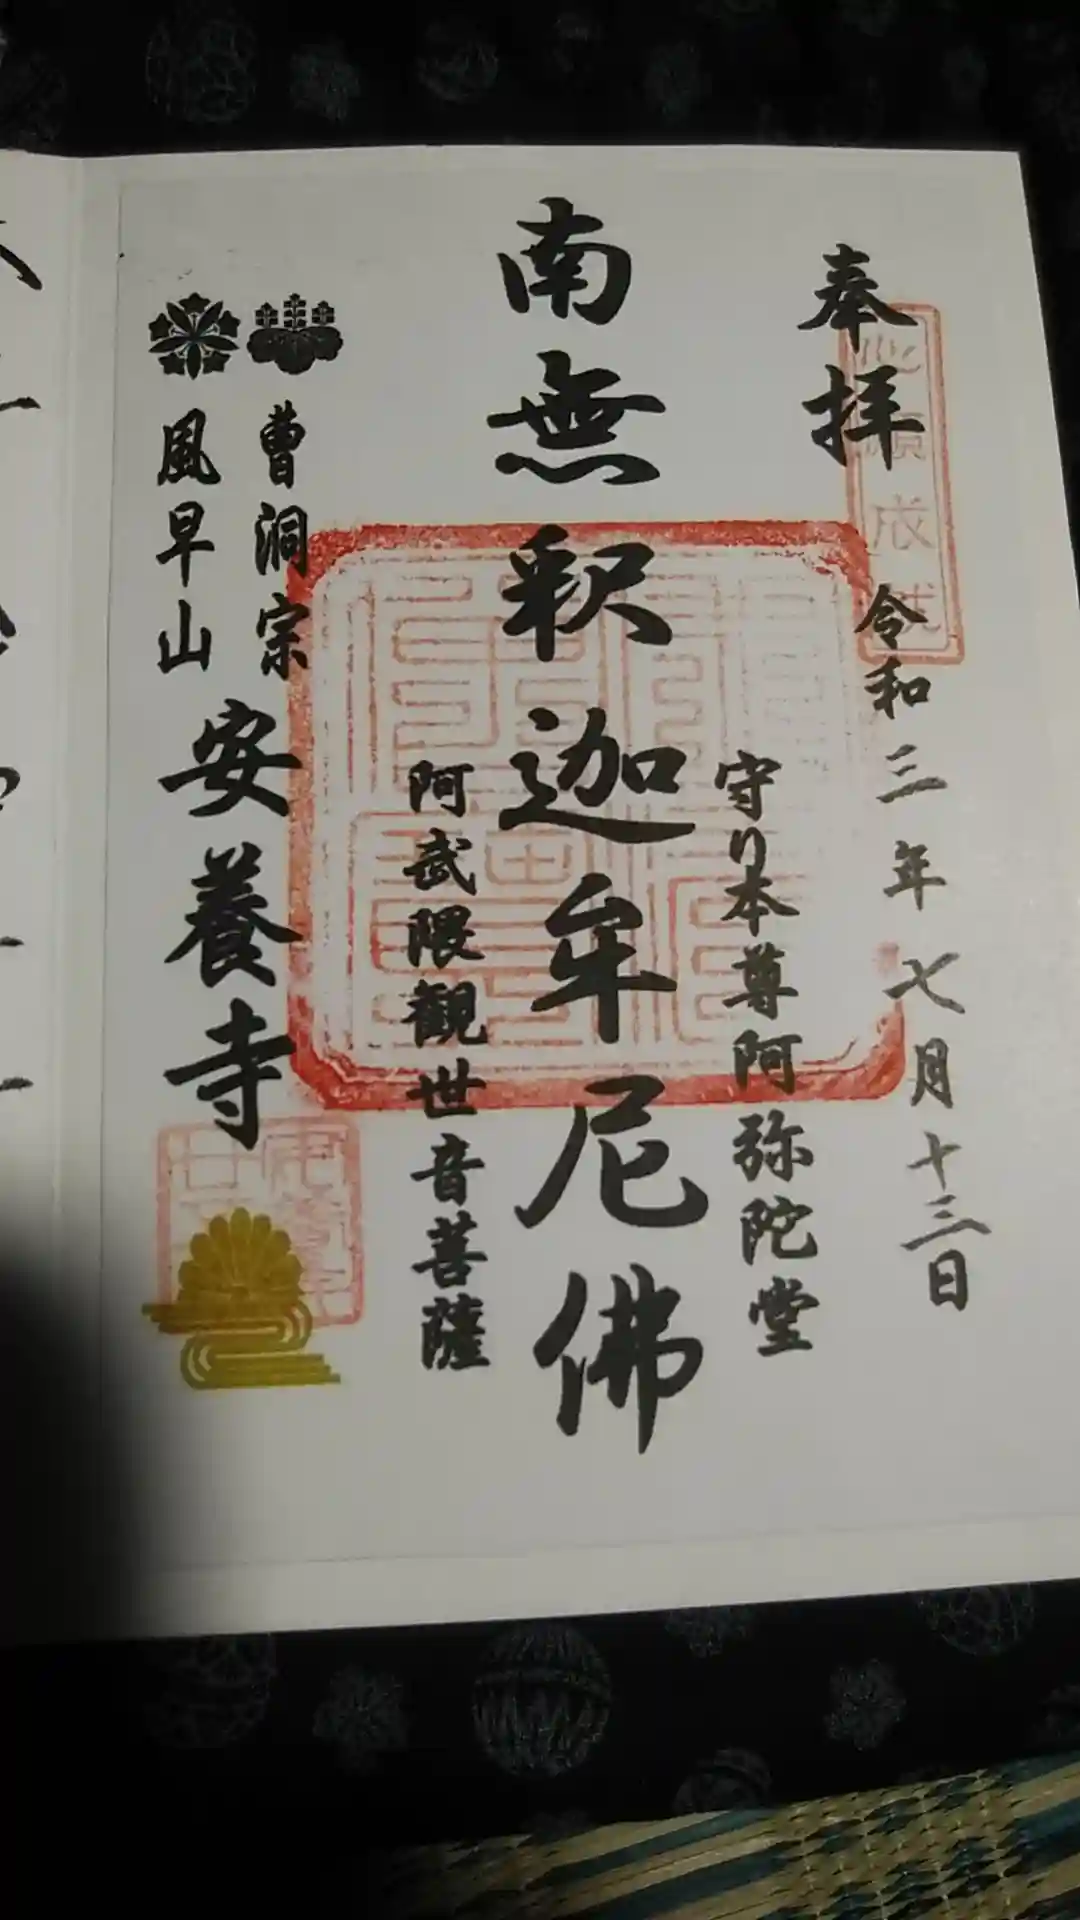 奉拝
心願成就
令和三年七月十三日
守り本尊阿弥陀堂
南無釈迦牟尼佛
阿武隈観世音菩薩
曹洞宗
風早山
安養寺